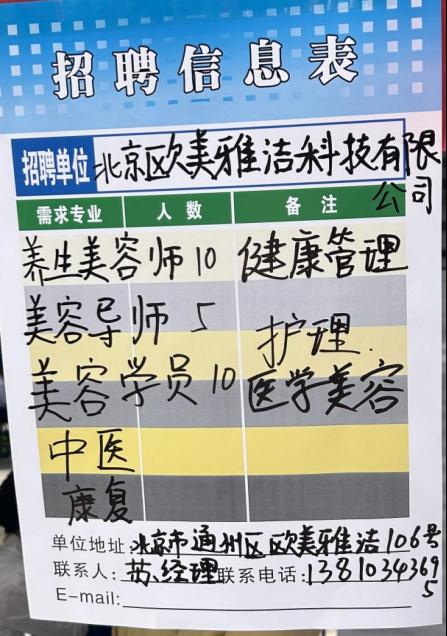 招聘信息表
招聘单位 北京欧美雅洁科技有限
公司
需求专业 人数 备注
养生美容师 10 健康管理
美容导师 5
护理.
美容学员 10 医学美容
中医
康复
单位地址: 北京市通州区欧美雅洁106号
联系人: 苏经理 联系电话: 1381034369
5
E-mail: